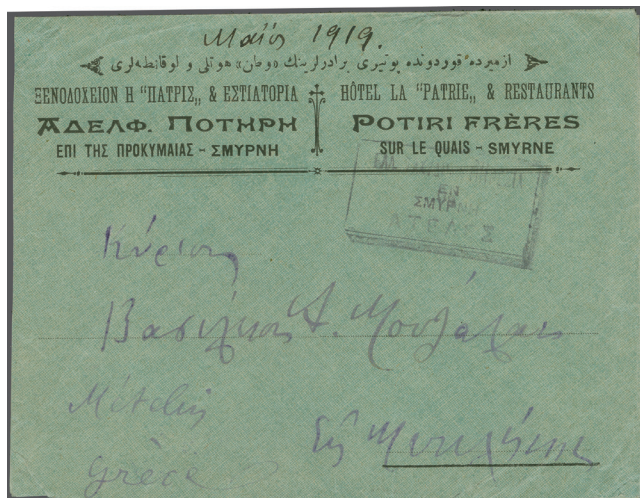 Μαΐος 1919.
ازميرده قوردونده پوتيری برادرلرينك «وطن» هوتلی و لوقانطه‌لری
ΞΕΝΟΔΟΧΕΙΟΝ Η "ΠΑΤΡΙΣ„ & ΕΣΤΙΑΤΟΡΙΑ
ΑΔΕΛΦ. ΠΟΤΗΡΗ
ΕΠΙ ΤΗΣ ΠΡΟΚΥΜΑΙΑΣ - ΣΜΥΡΝΗ
HÔTEL LA "PATRIE„ & RESTAURANTS
POTIRI FRÈRES
SUR LE QUAIS - SMYRNE
ΕΝ
ΣΜΥΡΝΗ
ΑΤΕΛΩΣ
Κύριον
Βασίλειον Δ.
Métélin
Grèce
Εἰς Μυτιλήνην